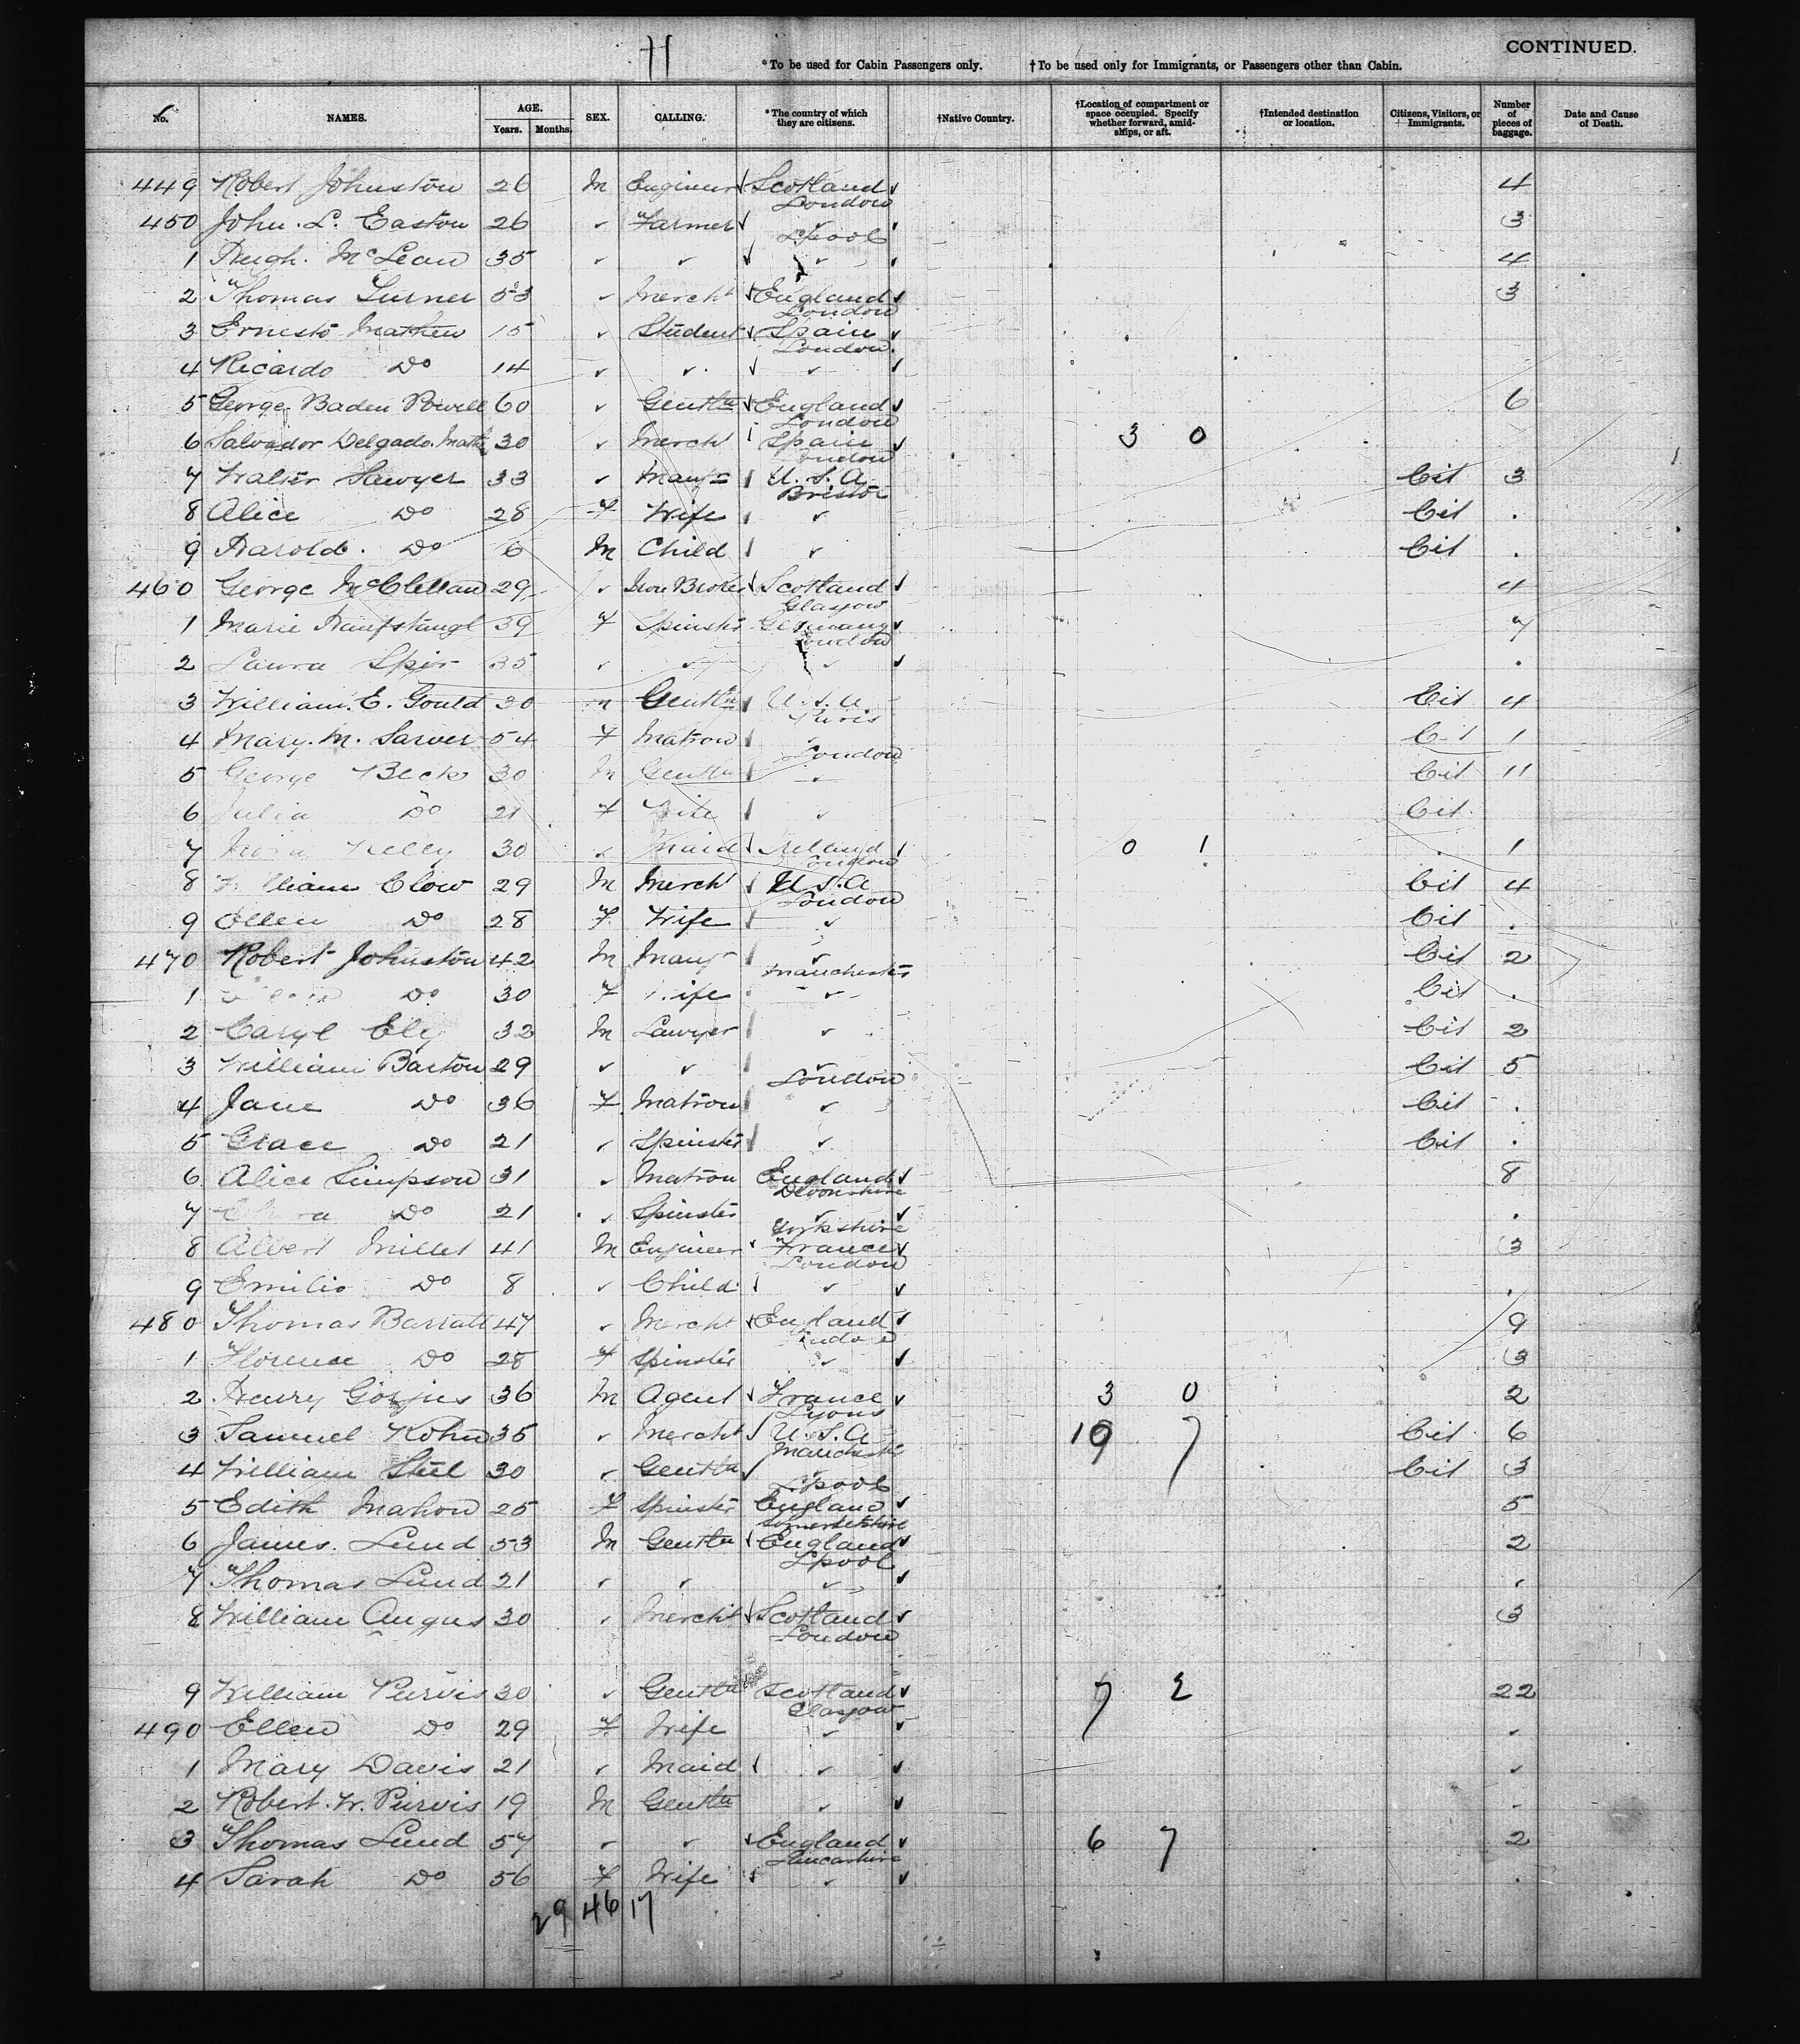 11
CONTINUED.
*To be used for Cabin Passengers only. †To be used only for Immigrants, or Passengers other than Cabin.
No. NAMES. AGE. Years. Months. SEX. CALLING. *The country of which they are citizens. †Native Country. †Location of compartment or space occupied. Specify whether forward, amidships, or aft. †Intended destination or location. Citizens, Visitors, or Immigrants. Number of pieces of baggage. Date and Cause of Death.
449 Robert Johnston 26 M Engineer Scotland 4
London
450 John. L. Easton 26 ✓ Farmer ✓ 3
L'pool
1 Hugh. McLean 35 ✓ ✓ ✓ 4
2 Thomas Turner 53 ✓ Mercht England 3
London
3 Ernesto Mathew 15 ✓ Student Spain
London
4 Ricardo Do 14 ✓ ✓ ✓
5 George Baden Powell 60 ✓ Gentln England 6
London
6 Salvador Delgado 30 ✓ Mercht Spain 3 0
London
7 Walter Sawyer 33 ✓ Manfr U.S.A Cit 3
Bristol
8 Alice Do 28 F Wife ✓ Cit .
9 Harold. Do 6 M Child ✓ Cit .
460 George McClellan 29 ✓ Iron Broker Scotland 4
Glasgow
1 Marie Hanfstaengl 39 F Spinster Germany 7
London
2 Laura Spir 35 ✓ ✓ ✓ .
3 William. E. Gould 30 M Gentln U.S.A Cit 4
Paris
4 Mary. M. Sarver 54 F Matron ✓ Cit 1
London
5 George Beck 30 M Gentln ✓ Cit 11
6 Julia Do 21 F Wife ✓ Cit
7 Kelly 30 ✓ Maid Ireland 0 1 1
London
8 William Clow 29 M Mercht U.S.A Cit 4
London
9 Ellen Do 28 F Wife ✓ Cit .
470 Robert Johnston 42 M Manfr ✓ Cit 2
Manchester
1 Do 30 F Wife ✓ Cit .
2 Caryl Ely 32 M Lawyer ✓ Cit 2
3 William Barton 29 ✓ ✓ ✓ Cit 5
London
4 Jane Do 36 F Matron ✓ Cit .
5 Grace Do 21 ✓ Spinster ✓ Cit .
6 Alice Simpson 31 ✓ Matron England 8
Devonshire
7 Do 21 ✓ Spinster ✓ .
Yorkshire
8 Albert Millet 41 M Engineer France 3
London
9 Emilio Do 8 ✓ Child ✓ .
480 Thomas Barratt 47 ✓ Mercht England 9
London
1 Florence Do 28 F Spinster ✓ 3
2 Henry Gorjus 36 M Agent France 3 0 2
Lyons
3 Samuel Kohn 35 ✓ Mercht U.S.A 19 7 Cit 6
Manchester
4 William Steel 30 ✓ Gentln ✓ Cit 3
L'pool
5 Edith Mahon 25 F Spinster England 5
Somersetshire
6 James. Lund 53 M Gentln England 2
L'pool
7 Thomas Lund 21 ✓ ✓ ✓ .
8 William Angus 30 ✓ Mercht Scotland 3
London
9 William Purvis 30 ✓ Gentln Scotland 7 2 22
Glasgow
490 Ellen Do 29 F Wife ✓ ✓
1 Mary Davis 21 ✓ Maid ✓ ✓
2 Robert. W. Purvis 19 M Gentln ✓
3 Thomas Lund 57 ✓ ✓ England 6 7 2
Lancashire
4 Sarah Do 56 F Wife ✓ .
29 46 17